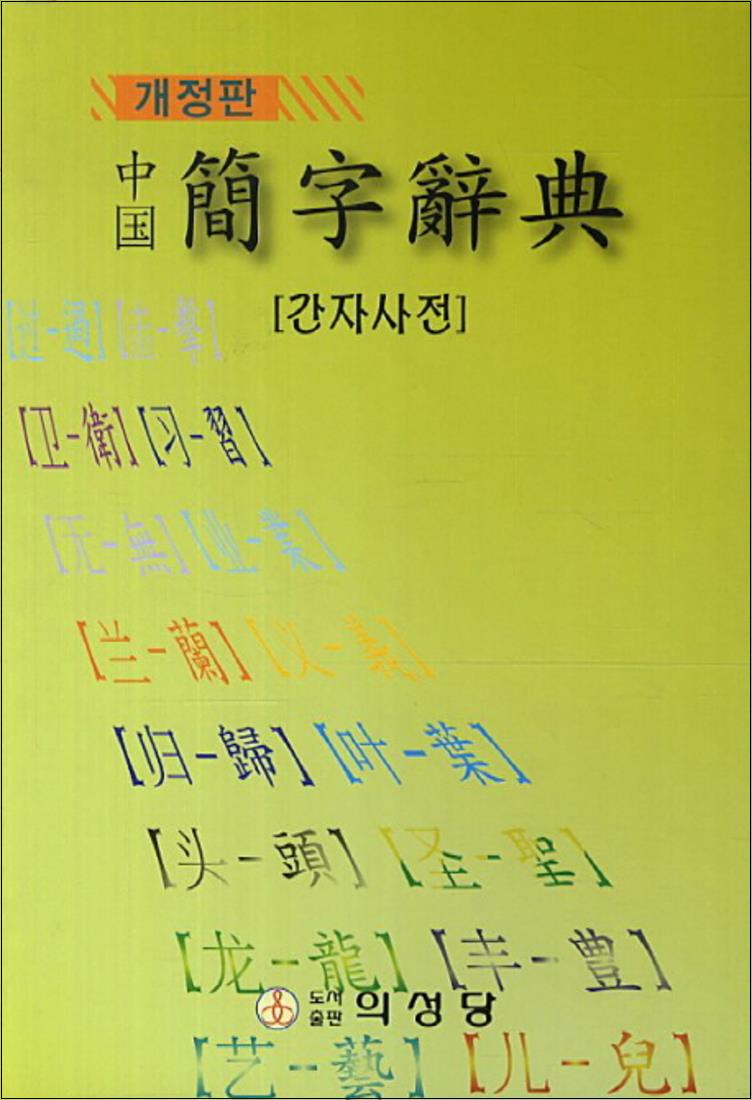 개정판
中国 簡字辭典
[간자사전]
[过-過] [击-擊]
[卫-衛] [习-習]
[无-無] [业-業]
[兰-蘭] [义-義]
[归-歸] [叶-葉]
[头-頭] [圣-聖]
[龙-龍] [丰-豊]
도서출판 의성당
[艺-藝] [儿-兒]